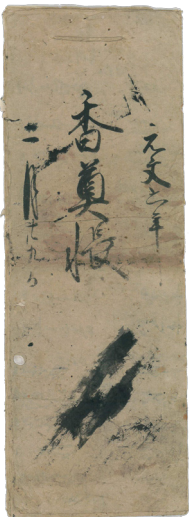 元文年
香奠帳
二月九日